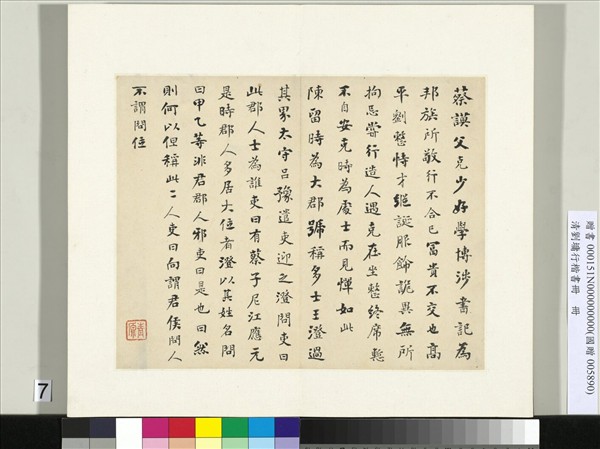 蔡謨父克少好學博涉書記為
邦族所敬行不合己冨貴不交也高
平劉整恃才縱誕服飾詭異無所
拘忌嘗行造人遇克在坐整終席慙
不自安克時為處士而見憚如此
陳留時為大郡號稱多士王澄過
其界太守呂豫遣吏迎之澄問吏曰
此郡人士為誰吏曰有蔡子尼江應元
是時郡人多居大位者澄以其姓名問
曰甲乙等非君郡人邪吏曰是也曰然
則何以但稱此二人吏曰向謂君侯問人
不謂問位
贈書 000151N000000000(國贈 005890)
清劉墉行楷書冊 冊
7